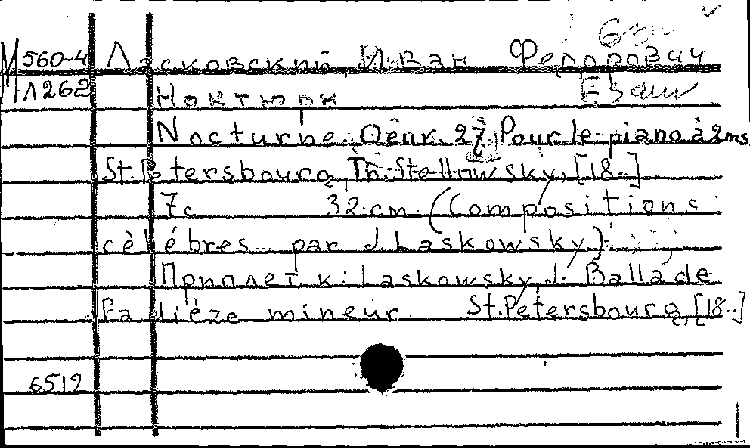 М 560-4 Ласковский, Иван Федорович
Л262 Ноктюрн
Nocturne. Oeuv. 27. Pour le piano à 2 ms
St. Petersbourg, Th. Stellowsky, [18..]
7 с. 32 cm. (Compositions
célébres par J. Laskowsky).
Приплет. к: Laskowsky, J. Ballade
Fa dièze mineur. St. Petersbourg, [18..]
6512